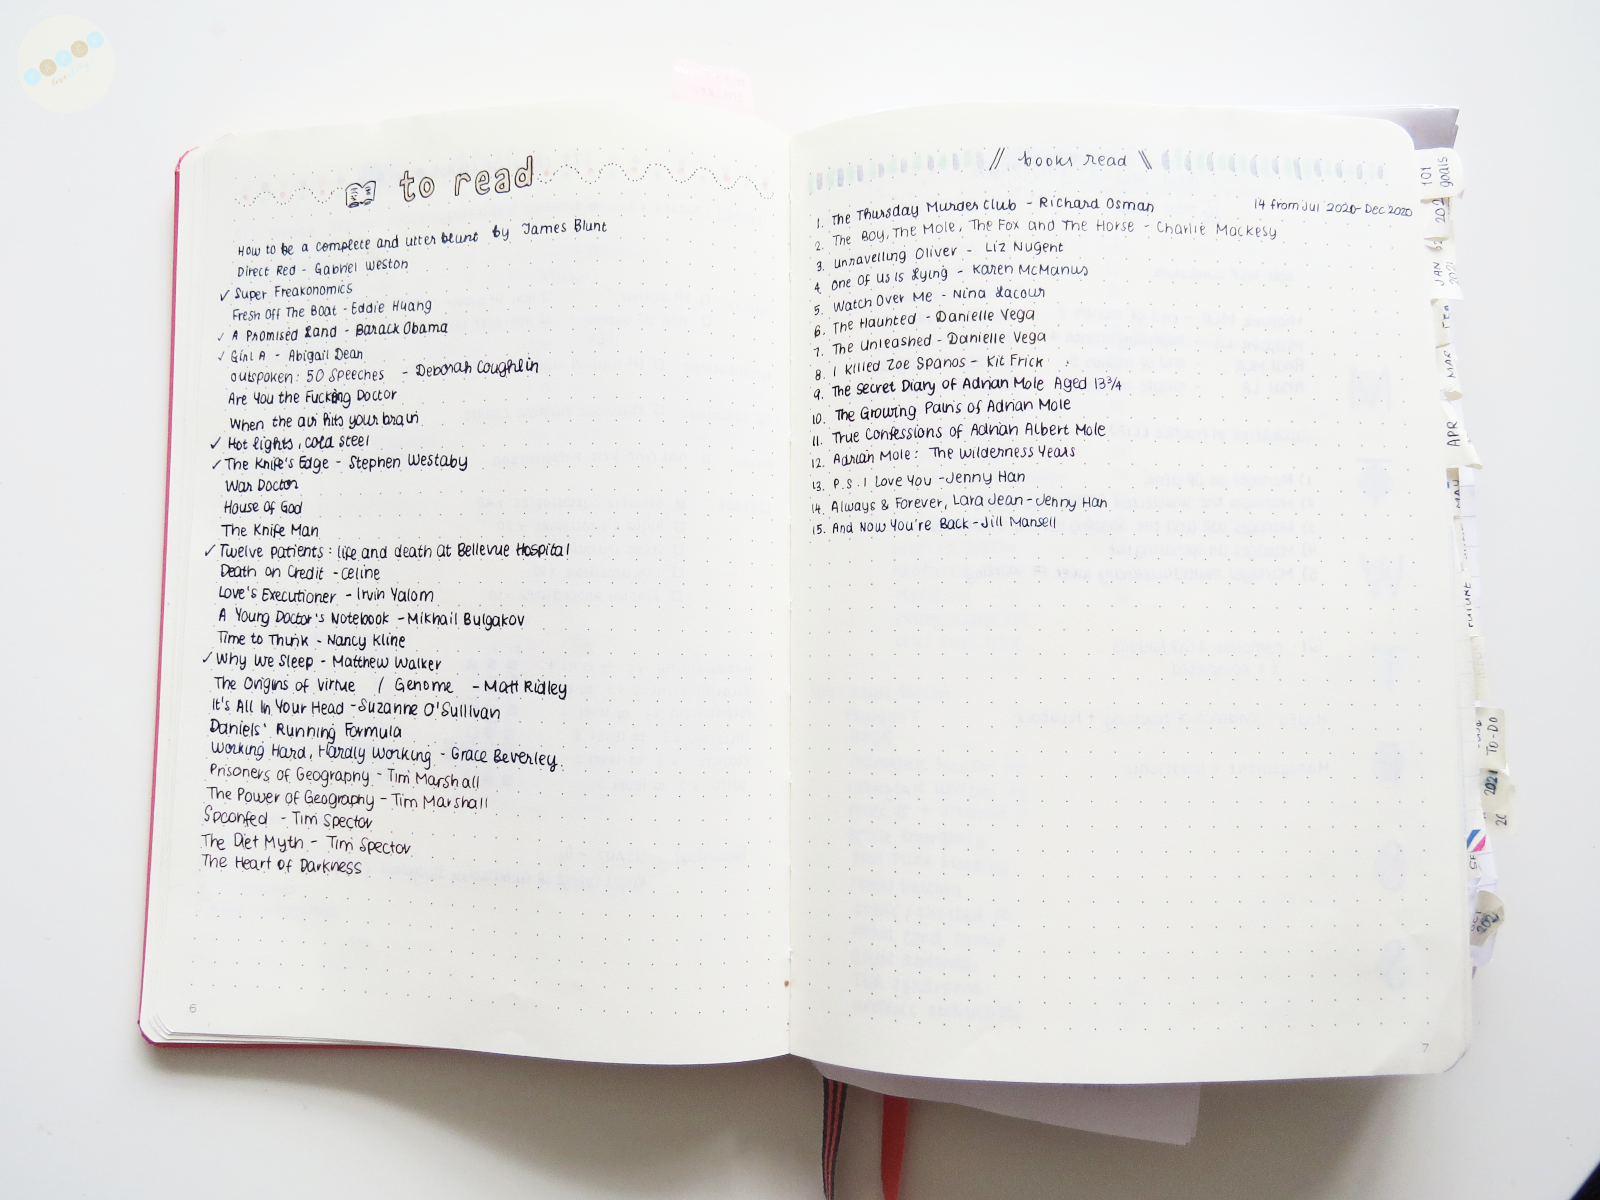 to read
How to be a complete and utter blunt by James Blunt
Direct Red - Gabriel Weston
✓ Super Freakonomics
Fresh Off The Boat - Eddie Huang
✓ A Promised Land - Barack Obama
✓ Girl A - Abigail Dean
outspoken: 50 Speeches - Deborah Coughlin
Are You the Fucking Doctor
When the air hits your brain
✓ Hot lights, cold steel
✓ The Knife's Edge - Stephen Westaby
War Doctor
House of God
The Knife Man
✓ Twelve patients: life and death at Bellevue Hospital
Death on Credit - Celine
Love's Executioner - Irvin Yalom
A Young Doctor's Notebook - Mikhail Bulgakov
Time to Think - Nancy Kline
✓ Why We Sleep - Matthew Walker
The Origins of Virtue / Genome - Matt Ridley
It's All In Your Head - Suzanne O'Sullivan
Daniels' Running Formula
Working Hard, Hardly Working - Grace Beverley.
Prisoners of Geography - Tim Marshall
The Power of Geography - Tim Marshall
Spoonfed - Tim Spector
The Diet Myth - Tim Spector
The Heart of Darkness
6
// books read \\
14 from Jul 2020-Dec 2020
1. The Thursday Murder Club - Richard Osman
2. The Boy, The Mole, The Fox and The Horse - Charlie Mackesy
3. unravelling Oliver - Liz Nugent
4. One Of Us Is Lying - Karen McManus
5. Watch Over Me - Nina Lacour
6. The Haunted - Danielle Vega
7. The Unleashed - Danielle Vega
8. I Killed Zoe Spanos - Kit Frick
9. The Secret Diary of Adrian Mole Aged 13¾
10. The Growing Pains of Adrian Mole
11. True Confessions of Adrian Albert Mole
12. Adrian Mole: The Wilderness Years
13. P.S. I Love You - Jenny Han
14. Always & Forever, Lara Jean - Jenny Han
15. And Now You're Back - Jill Mansell
7
101
goals
JAN
2021
MAR
APR
MAY
FUTURE
TO-DO
2021
OCT